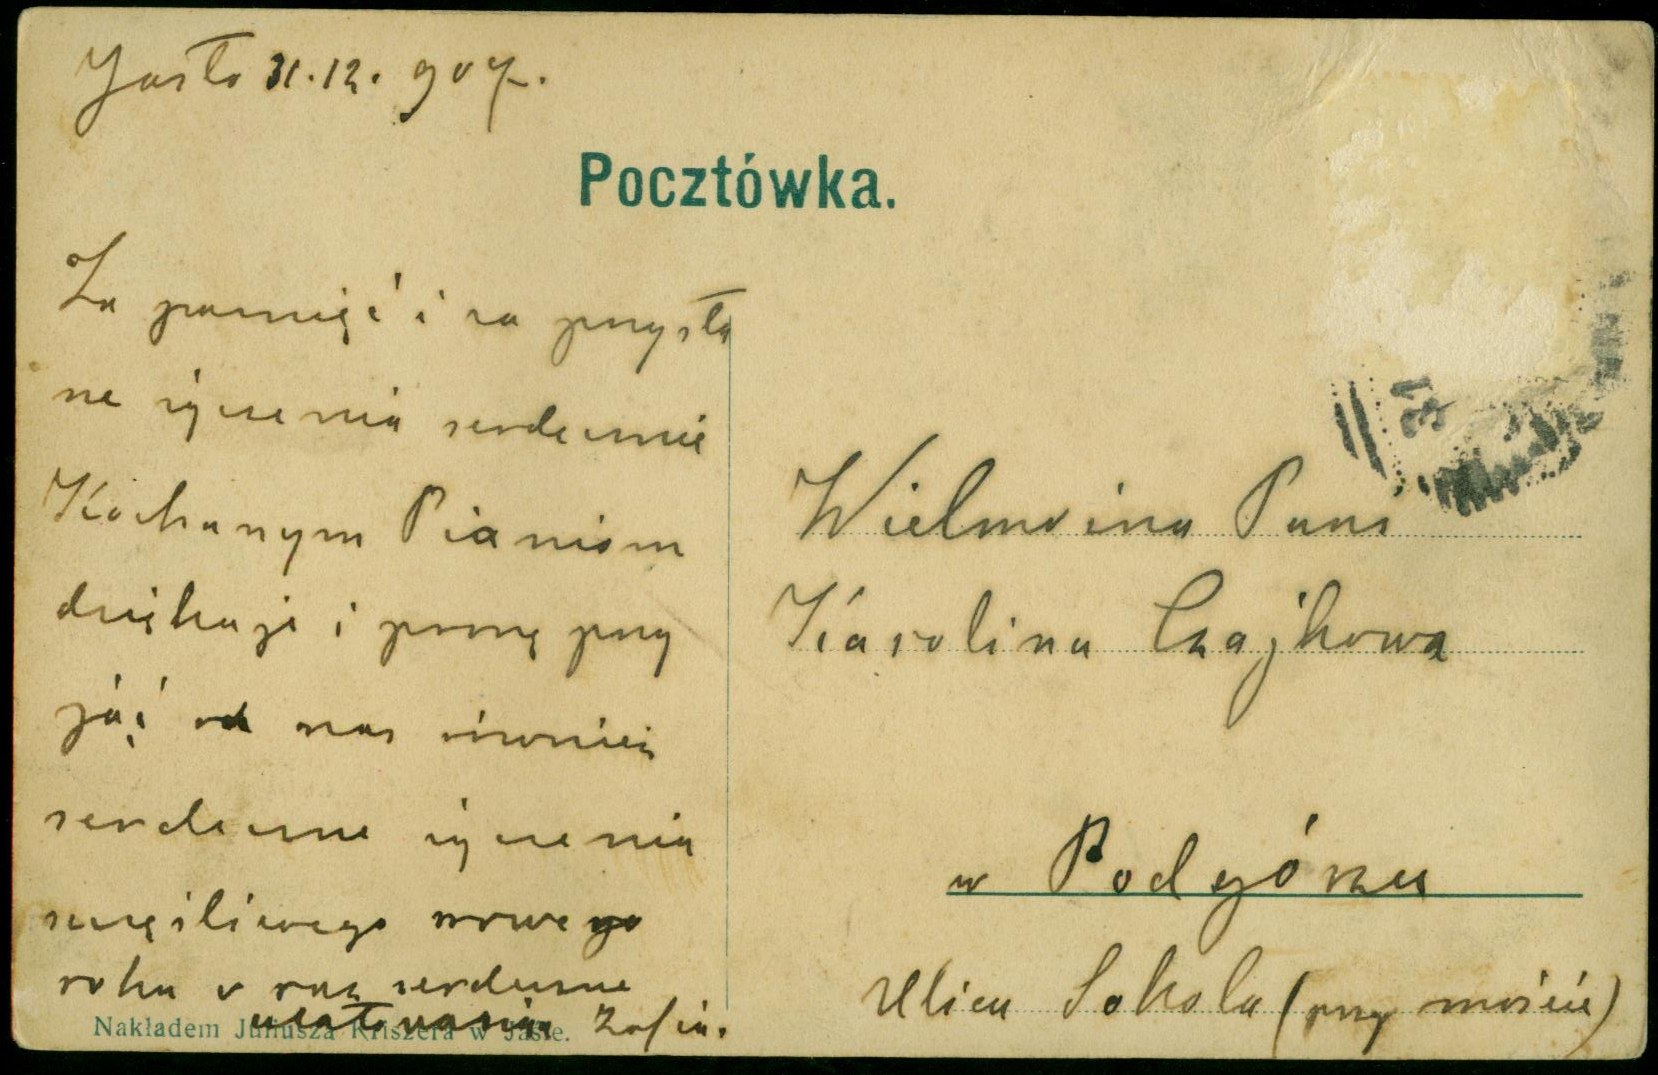 Jasło 31.12.907.
Pocztówka.
Za pamięć i za przysła
ne życzenia serdecznie
Kochanym Pianiom
dziękuje i proszę przy
jąć od nas również
serdeczne życzenia
szczęśliwego nowego
roku oraz serdeczne
ucałowania Zofia.
Nakładem Juliusza Kriszera w Jaśle.
31
Wielmożna Pani
Karolina Czajkowa
w Podgórzu
Ulica Sokola (przy moście)